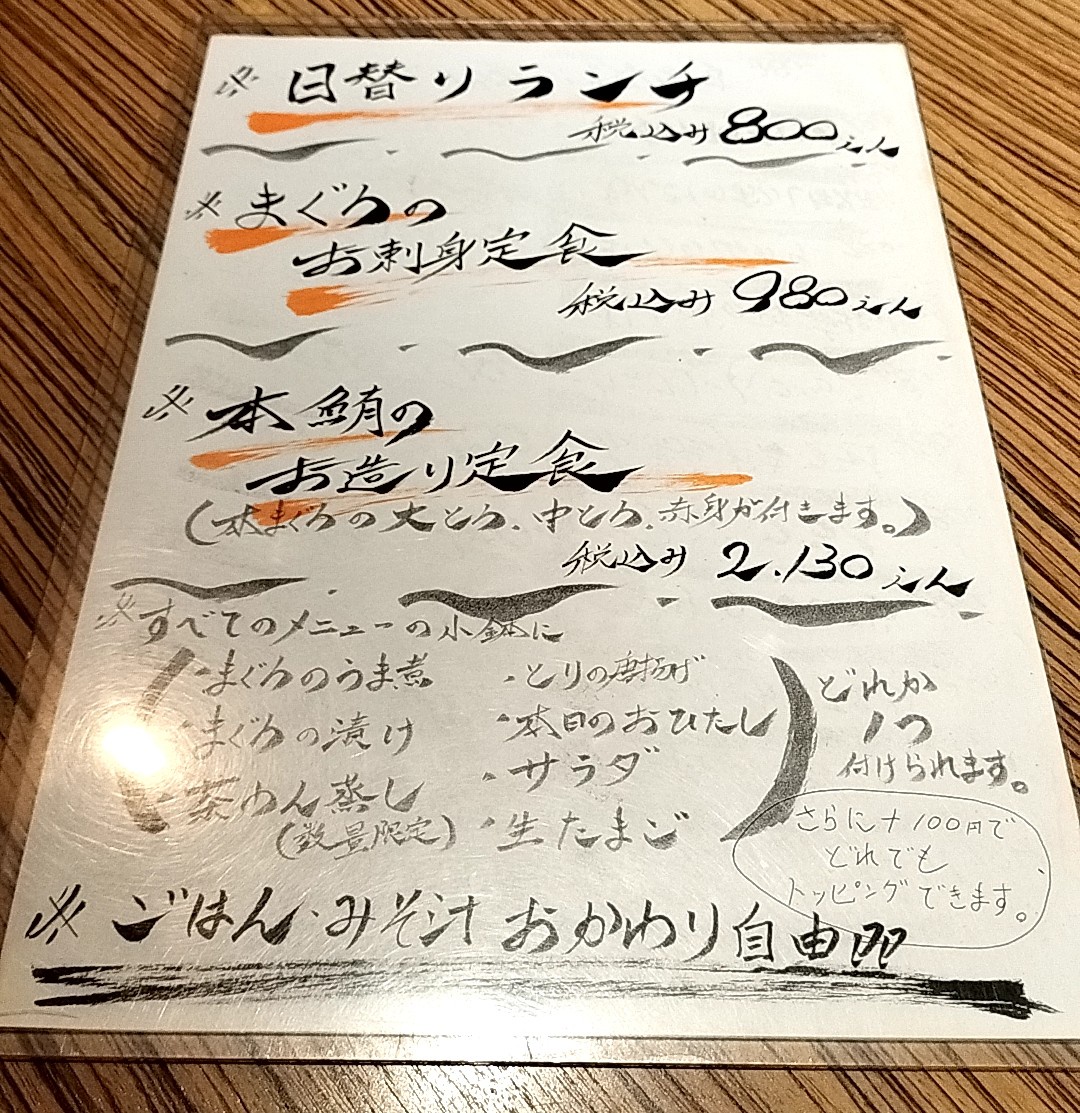 ※日替りランチ
税込み800えん
※まぐろの
お刺身定食
税込み980えん
※本鮪の
お造り定食
(本まぐろの大とろ、中とろ、赤身が付きます。)
税込み2,130えん
※すべてのメニューの小鉢に
・まぐろのうま煮
・まぐろの漬け
・茶わん蒸し
(数量限定)
・とりの唐揚げ
・本日のおひたし
・サラダ
・生たまご
どれか
1つ
付けられます。
さらに+100円で
どれでも
トッピングできます。
※ごはん・みそ汁おかわり自由